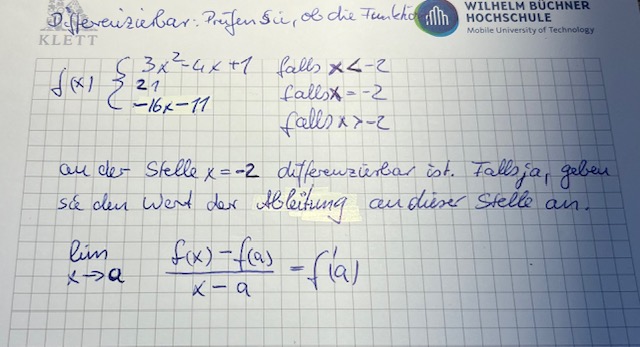 Differenzierbar: Prüfen Sie, ob die Funktion
KLETT
WILHELM BÜCHNER
HOCHSCHULE
Mobile University of Technology
f(x) { 3x²-4x+1 falls x<-2
21 falls x=-2
-16x-11 falls x>-2
an der Stelle x=-2 differenzierbar ist. Falls ja, geben
sie den Wert der Ableitung an dieser Stelle an.
lim x→a (f(x)-f(a))/(x-a) = f'(a)